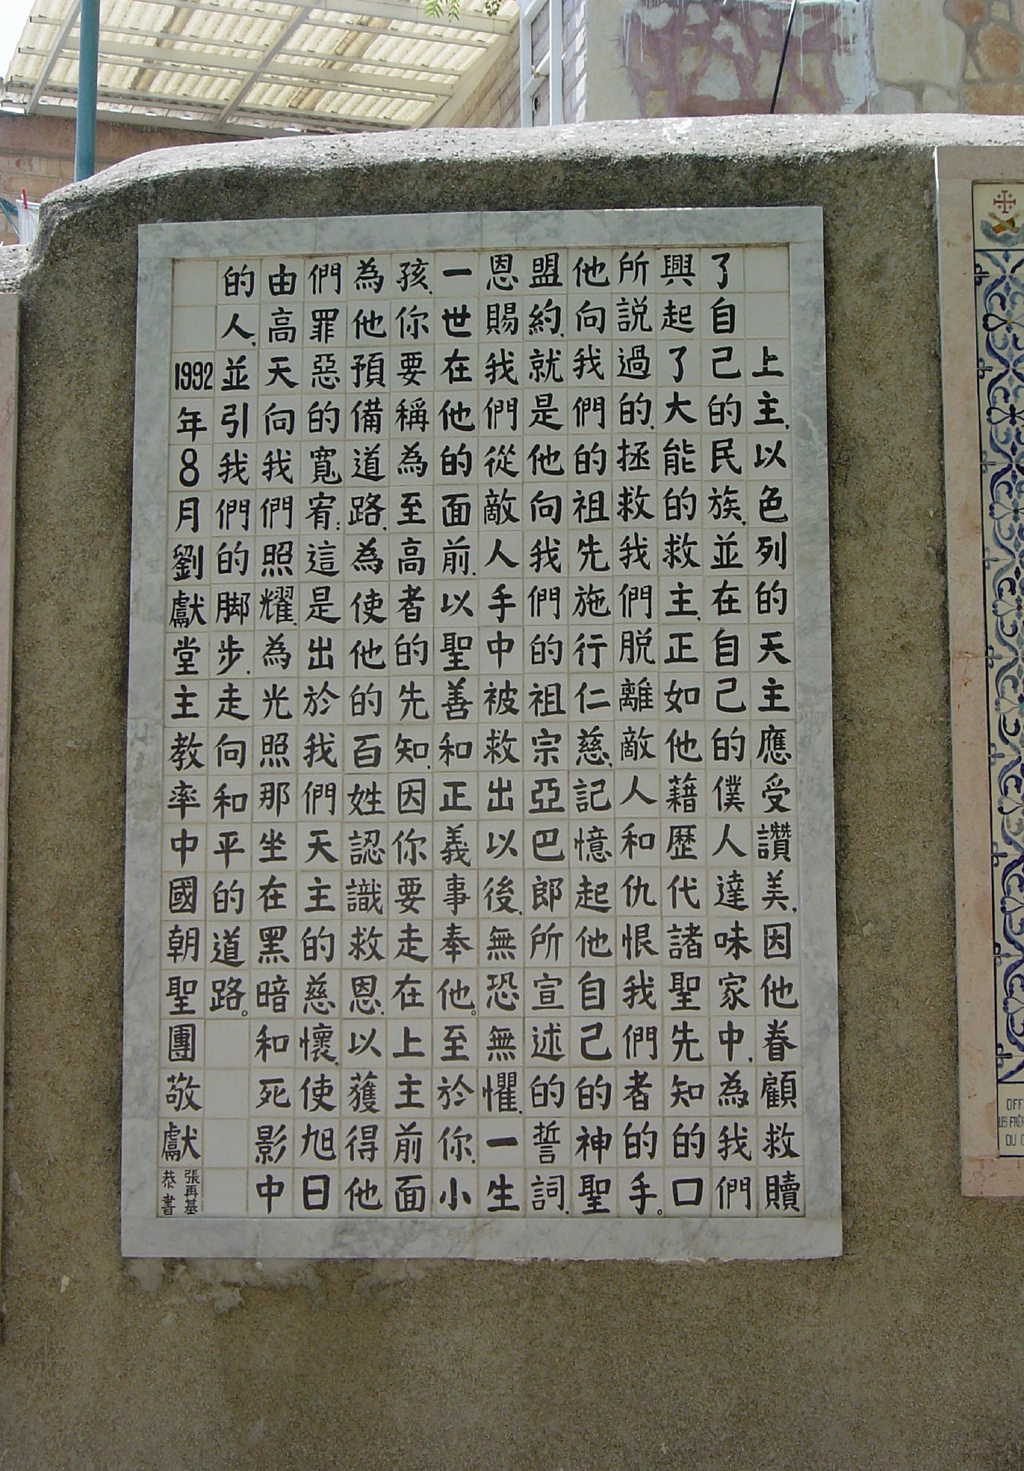 上主、以色列的天主應受讚美、因他眷顧救贖
了自己的民族、並在自己的僕人達味家中、為我們
興起了大能的救主、正如他藉歷代諸聖先知的口
所說過的、拯救我們脱離敵人和仇恨我們者的手。
他向我們的祖先施行仁慈、記憶起他自己的神聖
盟約、就是他向我們的祖宗亞巴郎所宣述的誓詞、
恩賜我們從敵人手中被救出以後、無恐無懼、一生
一世在他的面前、以聖善和正義事奉他。至於你、小
孩、你要稱為至高者的先知、因你要走在上主前面
為他預備道路、為使他的百姓認識救恩、以獲得他
們罪惡的寬宥：這是出於我們天主的慈懷、使旭日
由高天向我們照耀、為光照那坐在黑暗和死影中
的人、並引我們的脚步、走向和平的道路。
1992年8月劉獻堂主教率中國朝聖團敬獻
張再基
恭書
OFF
LES FRÈ
DU C